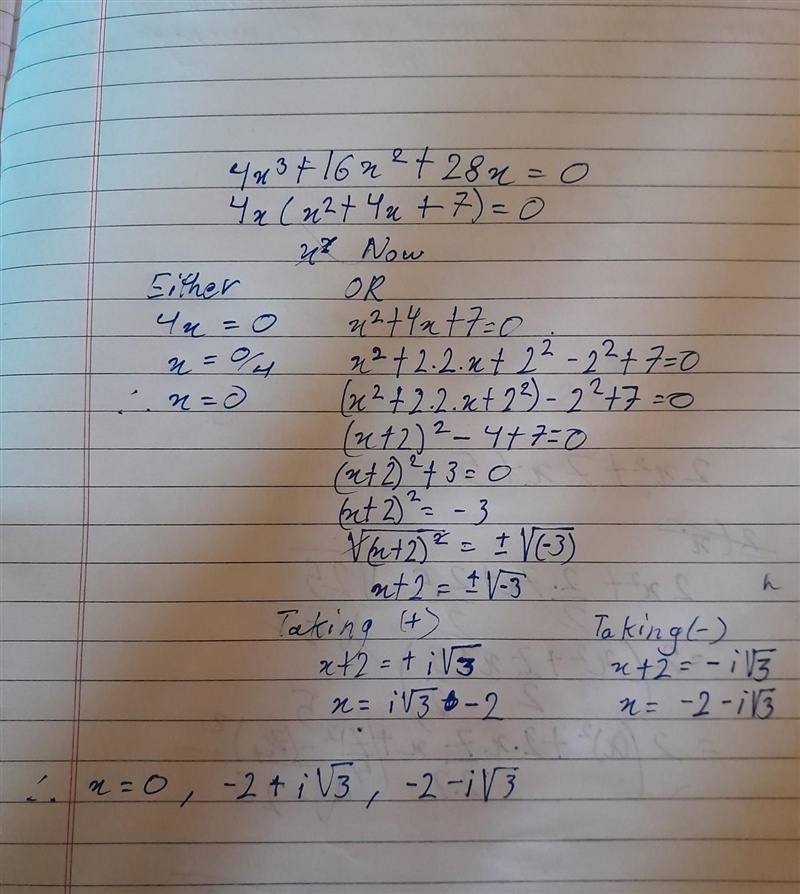 4x³ + 16x² + 28x = 0
4x(x² + 4x + 7) = 0
Now
Either OR
4x = 0 x² + 4x + 7 = 0
x = 0/4 x² + 2·2·x + 2² - 2² + 7 = 0
∴ x = 0 (x² + 2·2·x + 2²) - 2² + 7 = 0
(x+2)² - 4 + 7 = 0
(x+2)² + 3 = 0
(x+2)² = -3
√(x+2)² = ±√(-3)
x+2 = ±√-3
Taking (+) Taking (-)
x+2 = +i√3 x+2 = -i√3
x = i√3 - 2 x = -2 - i√3
∴ x = 0, -2 + i√3, -2 - i√3